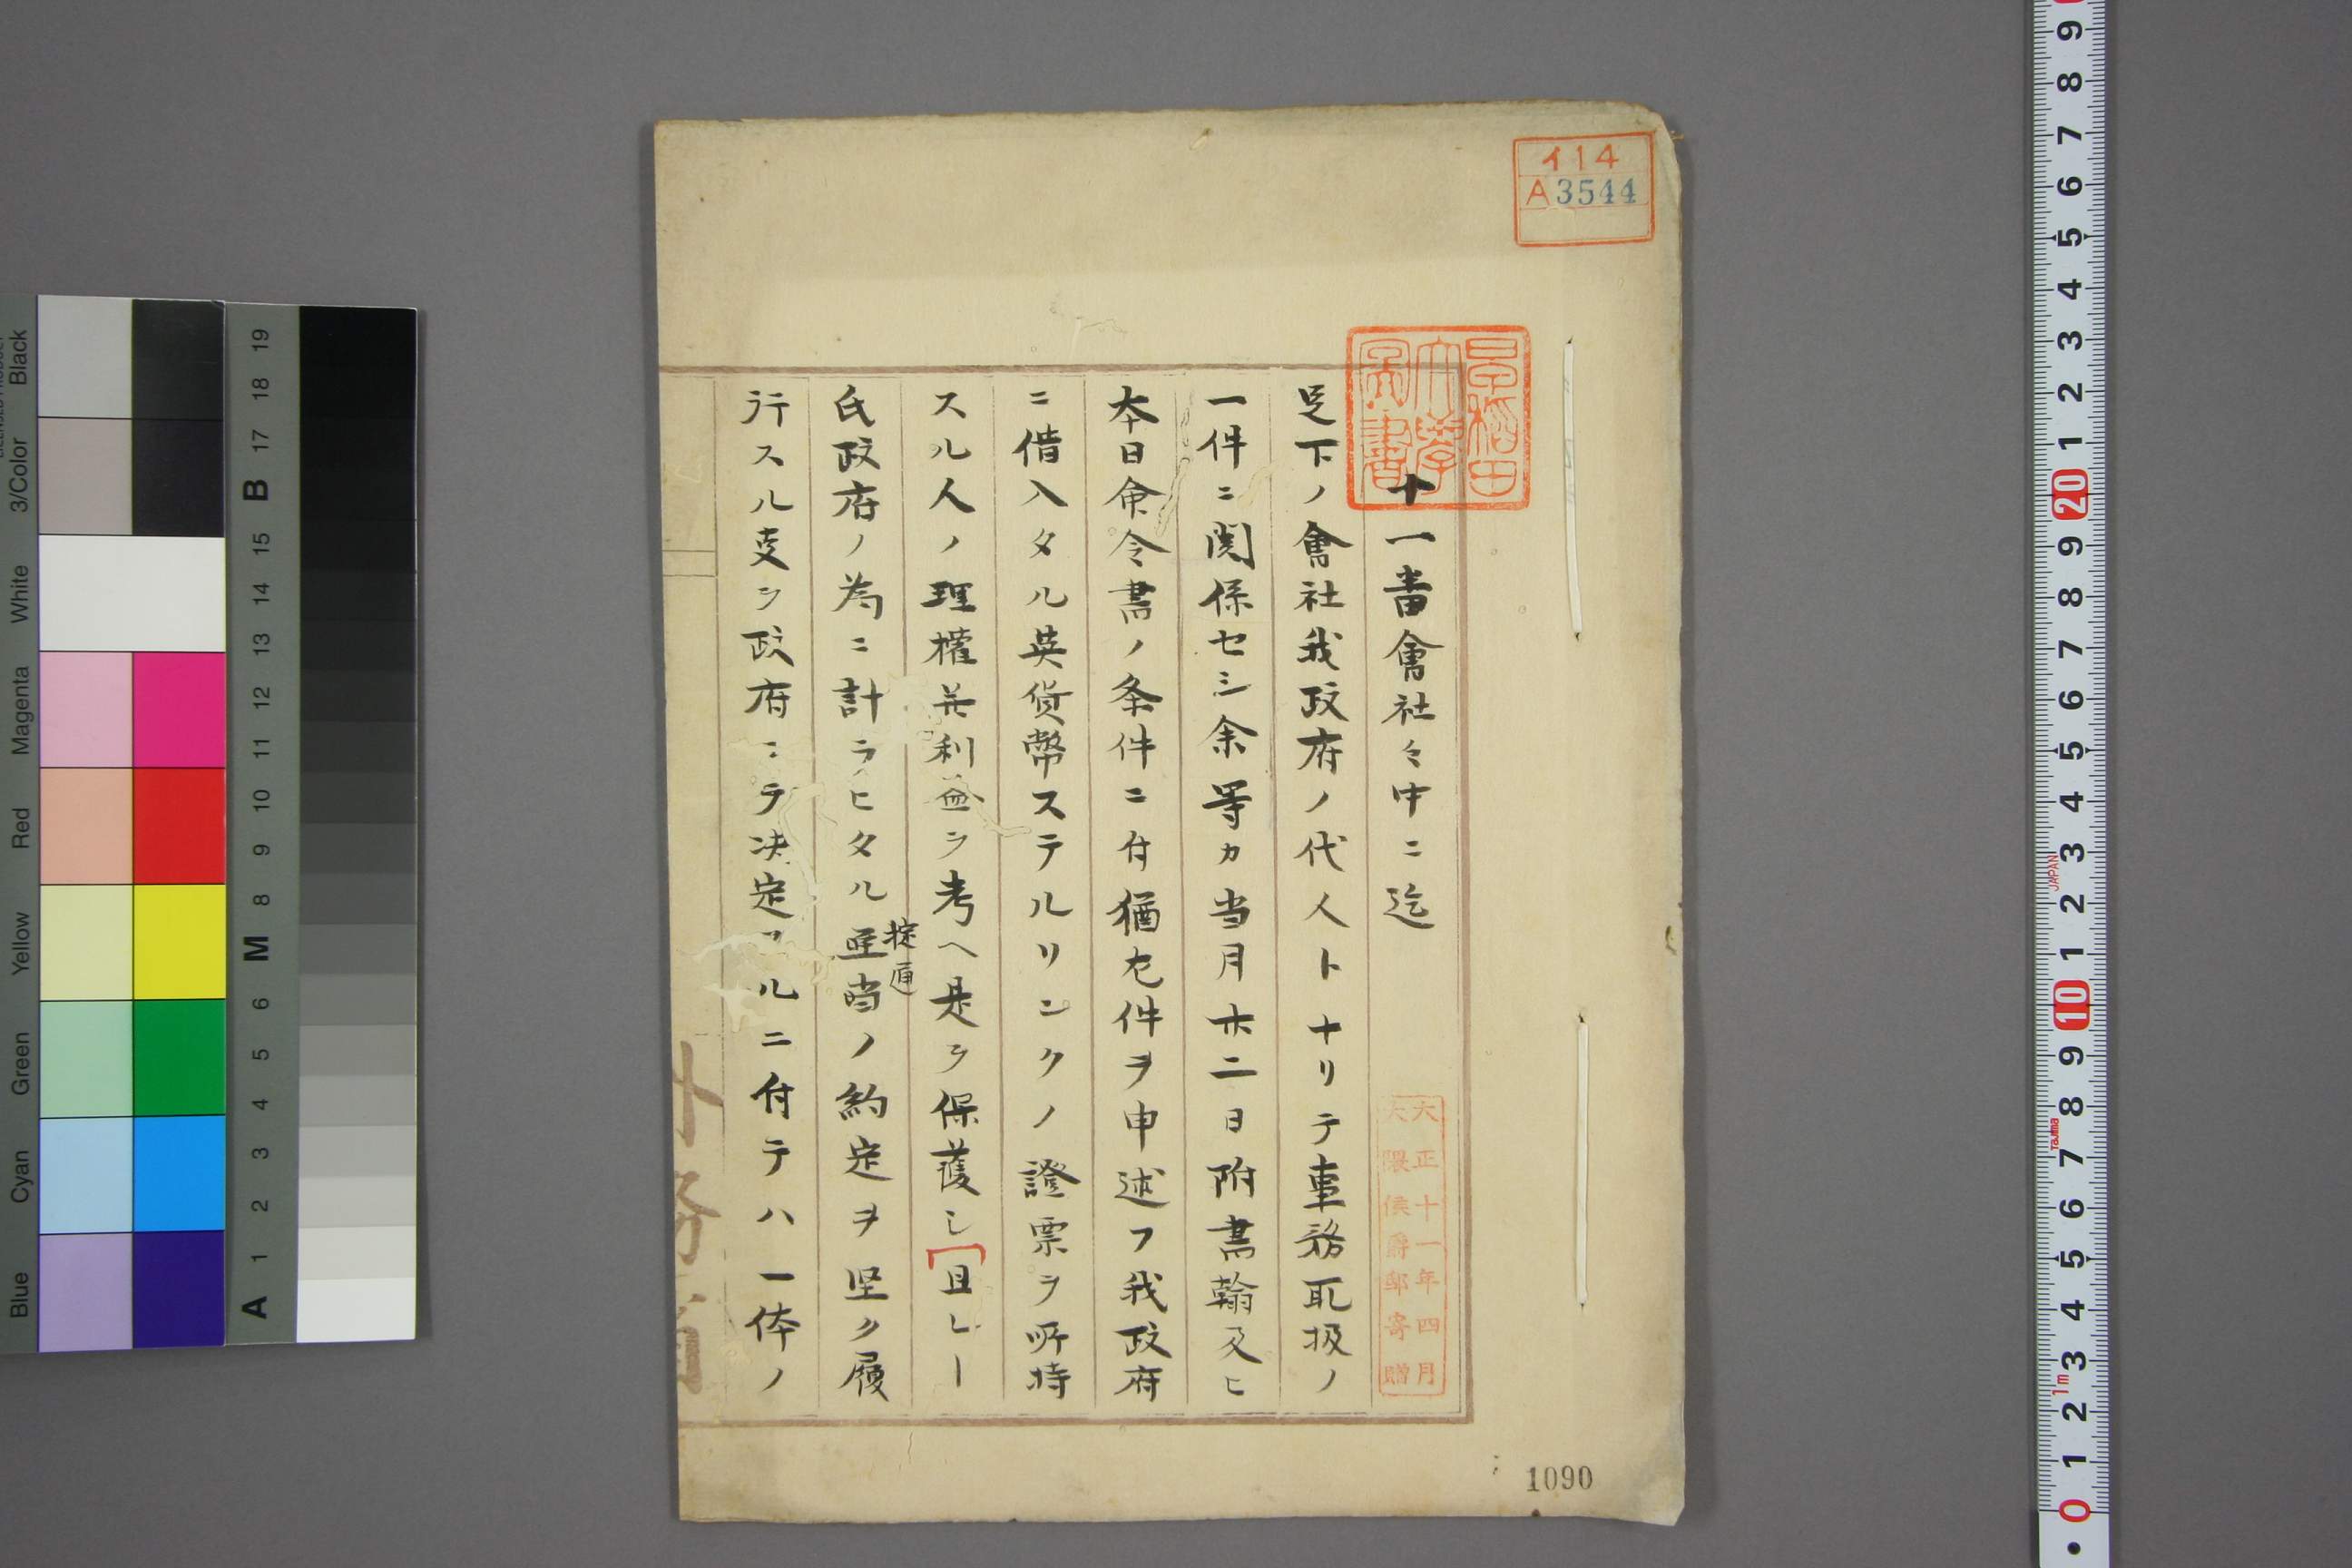 イ14
A3544
早稲田
大學
圖書
十一番會社々中ニ迄
足下ノ會社我政府ノ代人トナリテ事務取扱ノ
一件ニ関係セシ余等カ当月廿二日附書翰及ヒ
本日命令書ノ条件ニ付猶左件ヲ申述フ我政府
ニ借入タル英貨幣ステルリンクノ證票ヲ所持
スル人ノ理權并利益ヲ考ヘ是ヲ保護シ且レー
氏政府ノ為ニ計ラヒタル至当ノ約定ヲ坚ク履
行スル支ヲ政府ニテ決定スルニ付テハ一体ノ
大正十一年四月
大隈侯爵邸寄贈
1090
Black
3/Color
White
Magenta
Red
Yellow
Green
Cyan
Blue
A 1 2 3 4 5 6 M 8 9 10 11 12 13 14 15 B 17 18 19
JAPAN
Tajima
1m
0 1 2 3 4 5 6 7 8 9 10 1 2 3 4 5 6 7 8 9 20 1 2 3 4 5 6 7 8 9